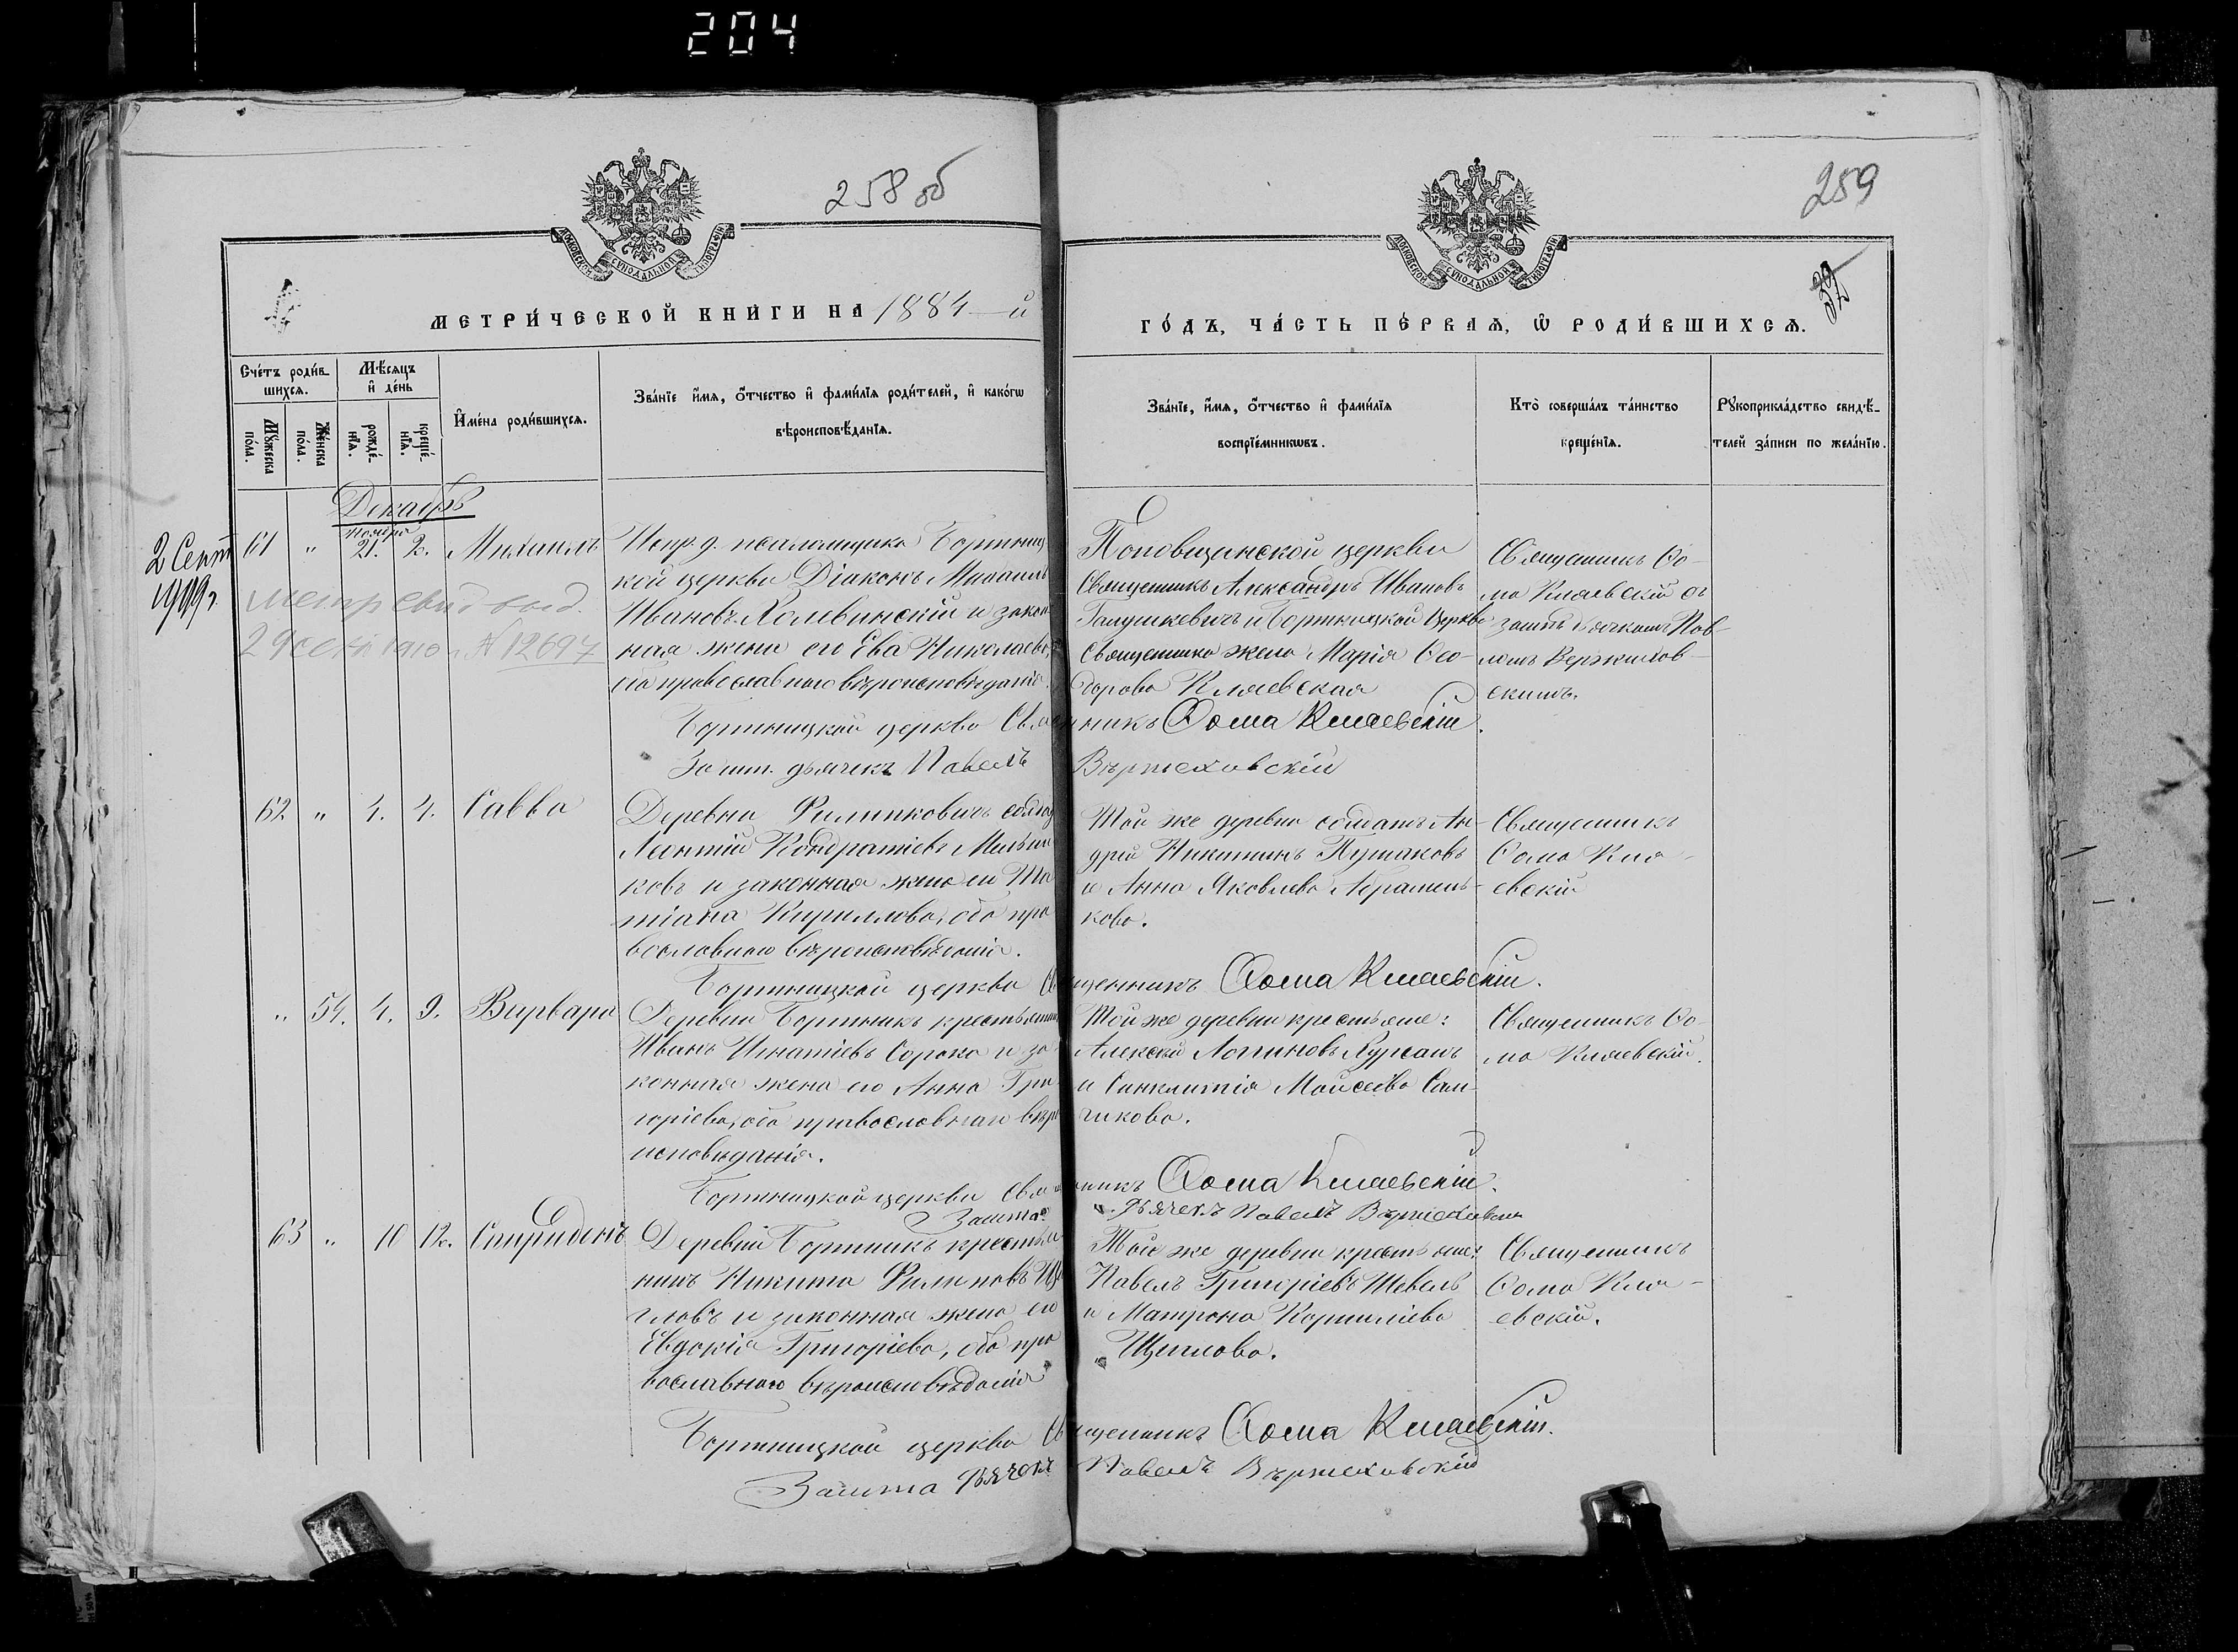 204
258 об
259
МОСКОВСКОЙ СѴНОДАЛЬНОЙ ТИПОГРАФІИ
МОСКОВСКОЙ СѴНОДАЛЬНОЙ ТИПОГРАФІИ
МЕТРИ́ЧЕСКОЙ КНИ́ГИ НА 1884-й
ГО́ДЪ, ЧА́СТЬ ПЕ́РВАЯ, Ѡ РОДИ́ВШИХСЯ.
Сче́тъ роди́в-
шихся.
Мꙋ́жеска по́ла.
Же́нска по́ла.
Мѣ́сяцъ и҆ де́нь
рожде́-
нїя.
креще́-
нїя.
И҆мена̀ роди́вшихся.
Зва́нїе и҆́мя, ѻ҆́тчество и҆ фами́лїя роди́телей, и҆ како́гѡ
вѣроисповѣ́данїя.
Зва́нїе, и҆́мя, ѻ҆́тчество и҆ фами́лїя
воспрїе́мникѡвъ.
Кто̀ соверша́лъ та́инство
креще́нїя.
Рꙋкоприкла́дство свидѣ́-
телей за́писи по жела́нїю.
Декабрь
2 Сент
61 " Ноября 21. 2. Михаилъ
метр свид выд.
1910 № 12697
Испр. д. псаломщика Бортниц
кой церкви Діаконъ Михаилъ
Ивановъ Холевинскій и закон
ная жена его Ева Николаева,
православнаго вѣроисповѣданія.
Поповщинской церкви
Священникъ Александръ Ивановъ
Галушкевичъ и Бортницкой Церкви
Священника жена Марія Ѳео-
дорова Кляевская
Священникъ Ѳо-
ма Кляевскій съ
зашт. дьячкомъ Пав-
ломъ Вержихов-
скимъ.
Бортницкой церкви Священникъ Ѳома Кляевскій.
Зашт. дьячекъ Павелъ Вержеховскій
62 " 4. 4. Савва
Деревни Филипковичъ солдатъ
Леонтій Кондратіевъ
ковъ и законная жена его Та
тіана Кириллова, оба пра
вославнаго вѣроисповѣданія.
Той же деревни солдатъ Ан-
дрей Никитинъ Пушаковъ
и Анна Яковлева Абрамень-
кова.
Священникъ
Ѳома Кля-
евскій
Бортницкой церкви Священникъ Ѳома Кляевскій.
" 54. 4. 9. Варвара
Деревни Бортникъ крестьянинъ
Иванъ Игнатіевъ Сорока и за
конная жена его Анна Гри-
горіева, оба православнаго вѣро
исповѣданія.
Той же деревни крестьяне:
Алексѣй Логиновъ Курсанъ
и Синклитія Моисеева Сам-
чикова.
Священникъ Ѳо-
ма Кляевскій.
Бортницкой церкви Священникъ Ѳома Кляевскій.
Зашта. Дьячекъ Павелъ Вержеховскій
63 " 10 12. Спиридонъ
Деревни Бортникъ крестья
нинъ Никита Филиповъ Ще
гловъ и законная жена его
Евдокія Григоріева, оба пра
вославнаго вѣроисповѣданія
Той же деревни крестьяне:
Павелъ Григоріевъ Шевель
и Матрона Корниліева
Щеглова.
Священникъ
Ѳома Кля-
евскій.
Бортницкой церкви Священникъ Ѳома Кляевскій.
Зашта Дьячекъ Павелъ Вержеховскій